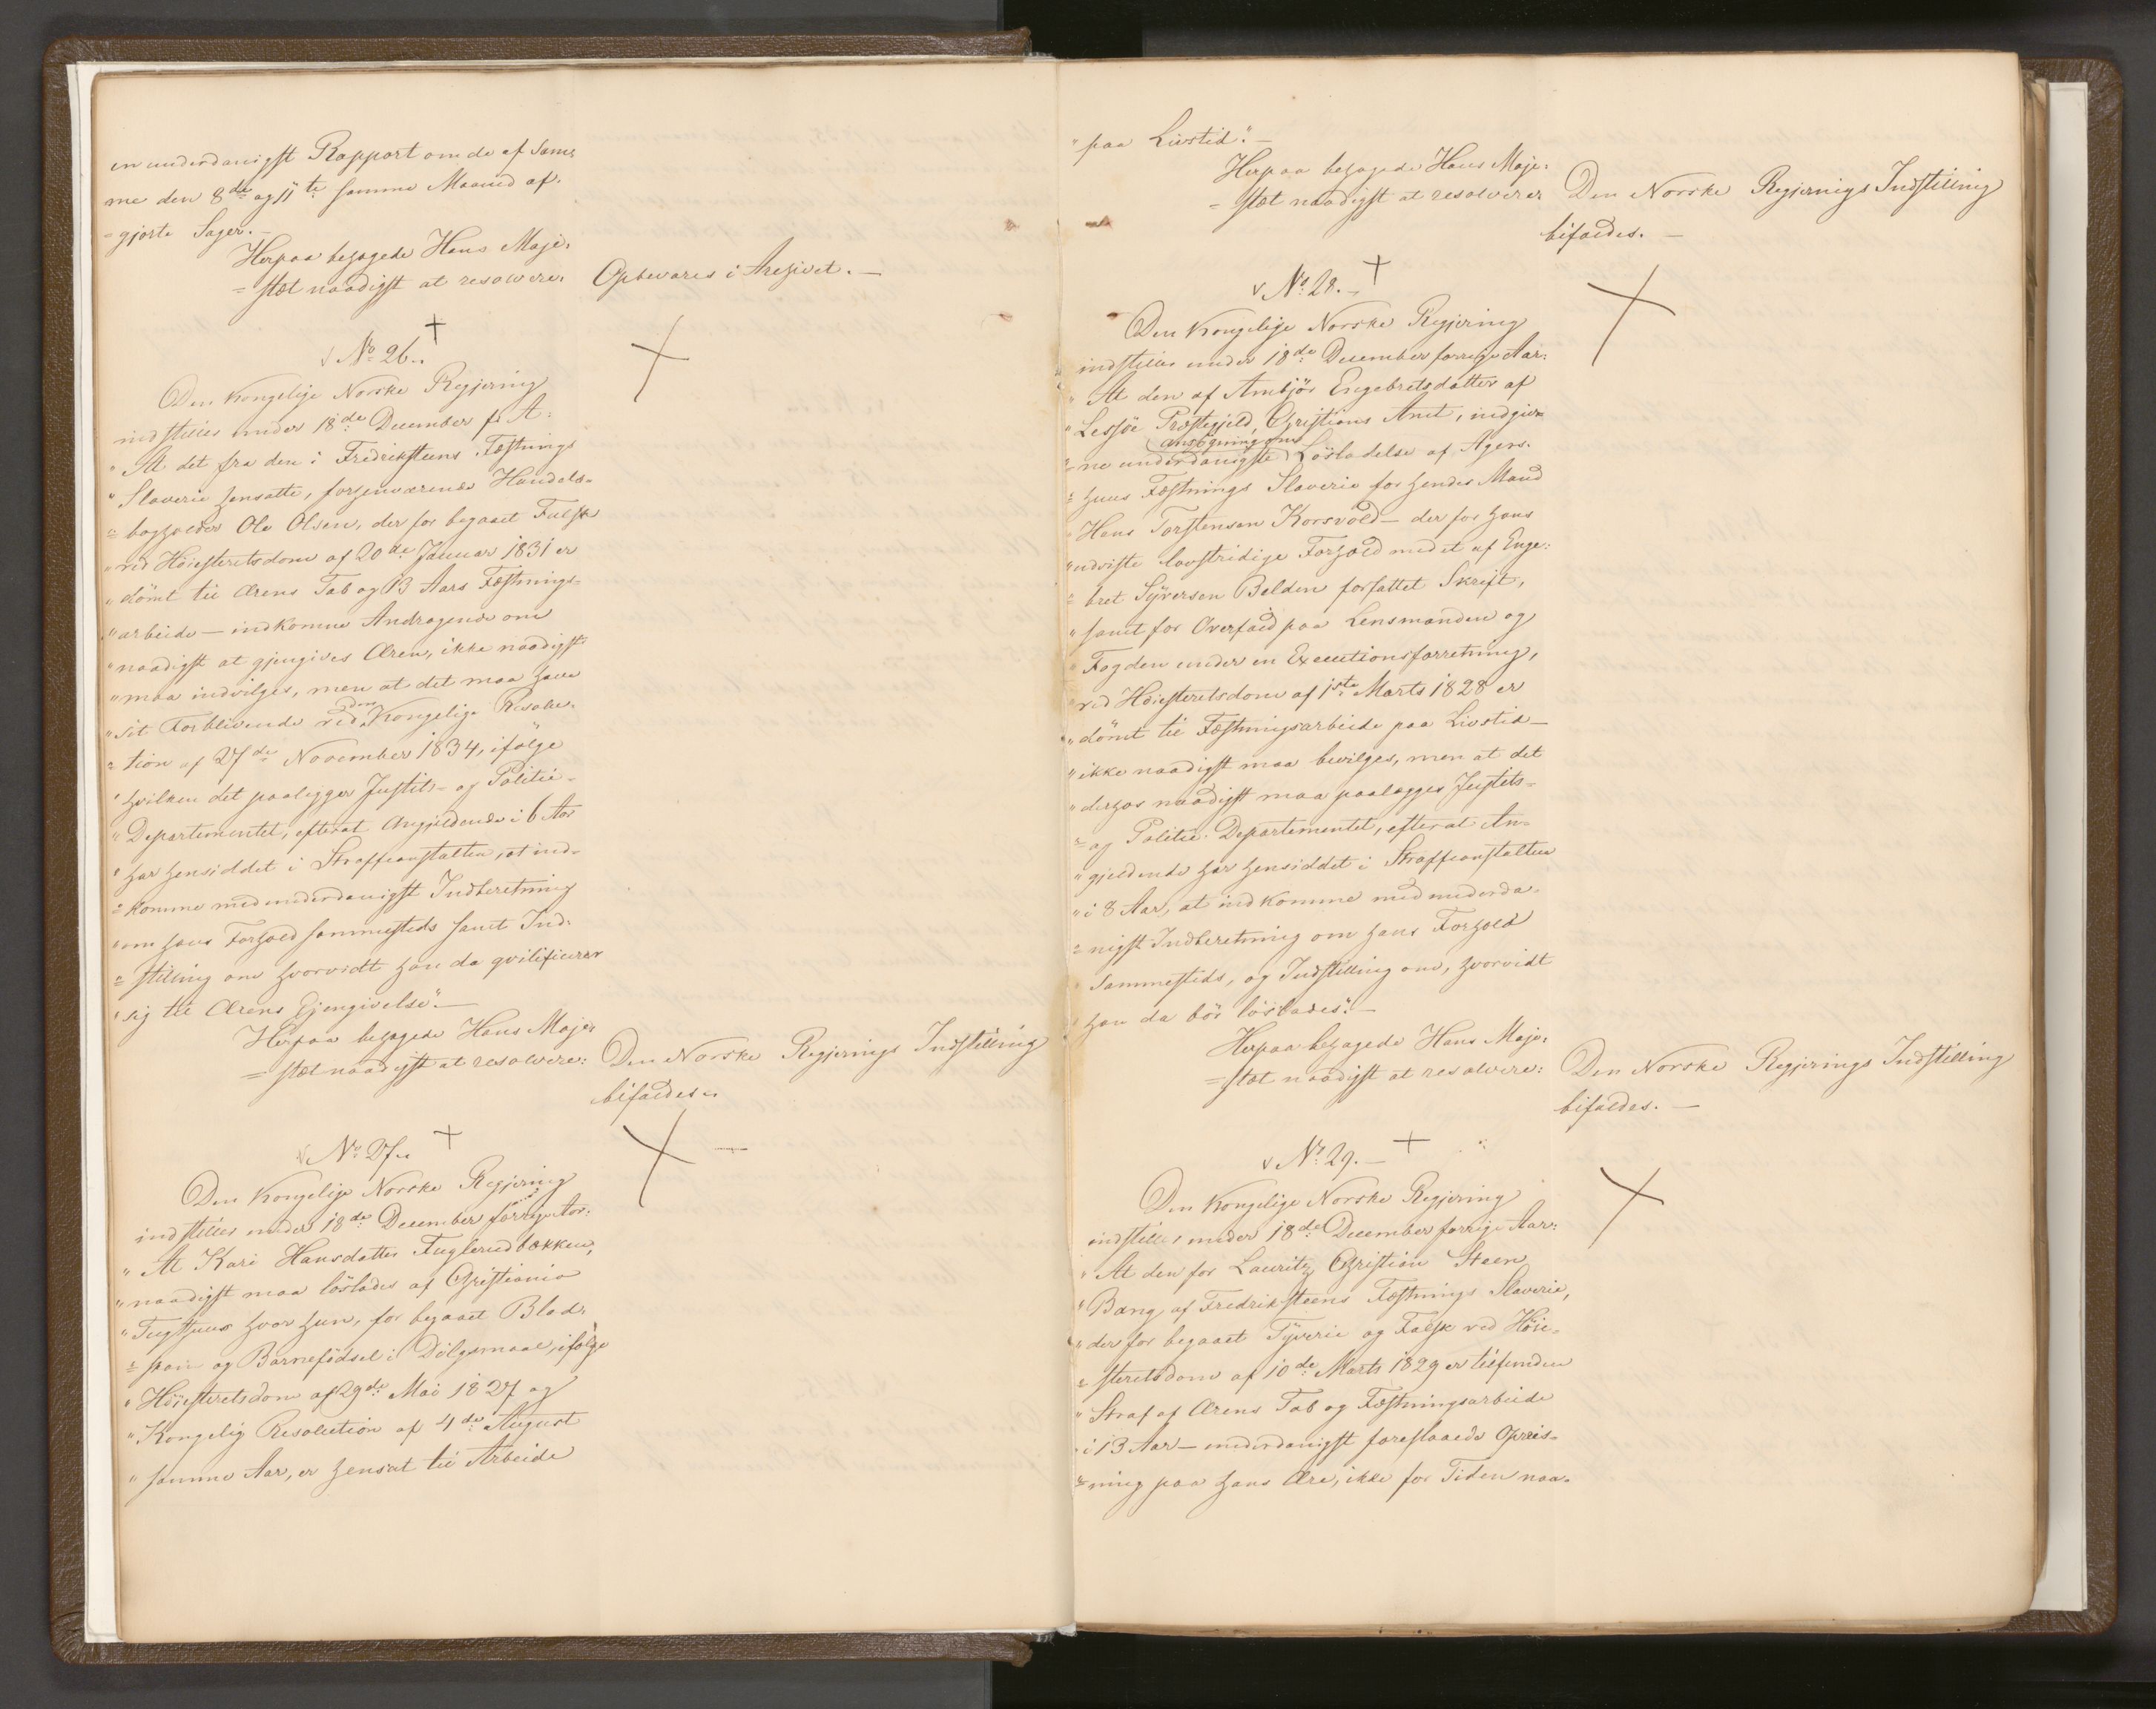 en underdanigst Rapport om de af Sam¬
me den 8de og 11te samme Maaned af¬
=gjorte Sager. —
Herpaa behagede Hans Maje¬
=stæt naadigst at resolvere: Opbevares i Archivet. —
No 26.
Den Kongelige Norske Regjering
indstiller under 18de December f. A:
"At det fra den i Fredriksteens Fæstnings
"Slaverie hensatte, forhenværende Handels¬
=bogholder Ole Olsen, der for begaaet Falsk
"ved Höiesteretsdom af 20de Januar 1831 er
"dömt til Ærens Tab og 13 Aars Fæstnings¬
"arbeide — indkomne Andragende om
"naadigst at gjengives Æren, ikke naadigst
"maa indvilges, men at det maa have
"sit Forblivende ved den Kongelige Resolu¬
=tion af 27de November 1834, ifölge
"hvilken det paalægges Justits- og Politie-
"Departementet, efterat Angjeldende i 6 Aar
"har hensiddet i Straffeanstalten, at ind¬
=komme med underdanigst Indberetning
"om hans Forhold sammesteds samt Ind¬
=stilling om hvorvidt han da qvilificerer
"sig til Ærens Gjengivelse". —
Herpaa behagede Hans Maje¬
=stæt naadigst at resolvere: Den Norske Regjerings Indstilling
bifaldes.
No 27.
Den Kongelige Norske Regjering
indstiller under 18de December forrige Aar:
"At Kari Hansdatter Fuglerudbækken,
"naadigst maa löslades af Christiania
"Tugthuus hvor hun, for begaaet Blod¬
=skam og Barnefödsel i Dölgsmaal, ifölge
"Höiesteretsdom af 29de Mai 1827 og
"Kongelig Resolution af 4de August
"samme Aar, er hensat til Arbeide
"paa Livstid". —
Herpaa behagede Hans Maje¬
=stæt naadigst at resolvere: Den Norske Regjerings Indstilling
bifaldes. —
No 28. —
Den Kongelige Norske Regjering
indstiller under 18de December forrige Aar:
"At den af Ambjör Engebretsdatter af
"Lessöe Præstegjeld, Christians Amt, indgiv¬
=ne underdanigste Ansögning om Lösladelse af Agers¬
=huus Fæstnings Slaverie for hendes Mand
"Hans Torstensen Korsvold — der for hans
"udviste lovstridige Forhold med et af Enge¬
=bret Syversen Belden forfattet Skrift,
"samt for Overfald paa Lensmanden og
"Fogden under en Executionsforretning,
"ved Höiesteretsdom af 1ste Marts 1828 er
"dömt til Fæstningsarbeide paa Livstid —
"ikke naadigst maa bevilges, men at det
"derhos naadigst maa paalægges Justits-
=og Politie-Departementet, efterat An¬
"gjeldende har hensiddet i Straffeanstalten
"i 8 Aar, at indkomme med underda¬
=nigst Indberetning om hans Forhold
"sammesteds, og Indstilling om, hvorvidt
"han da bör löslades". —
Herpaa behagede Hans Maje¬
=stæt naadigst at resolvere: Den Norske Regjerings Indstilling
bifaldes. —
No 29. —
Den Kongelige Norske Regjering
indstiller under 18de December forrige Aar:
"At den for Lauritz Christian Steen
"Bang, af Fredriksteens Fæstnings Slaverie,
"der for begaaet Tyverie og Falsk ved Höie¬
=steretsdom af 10de Marts 1829 er tilfunden
"Straf af Ærens Tab og Fæstningsarbeide
"i 13 Aar — underdanigst foreslaaede Opreis¬
=ning paa hans Ære, ikke for Tiden naa¬